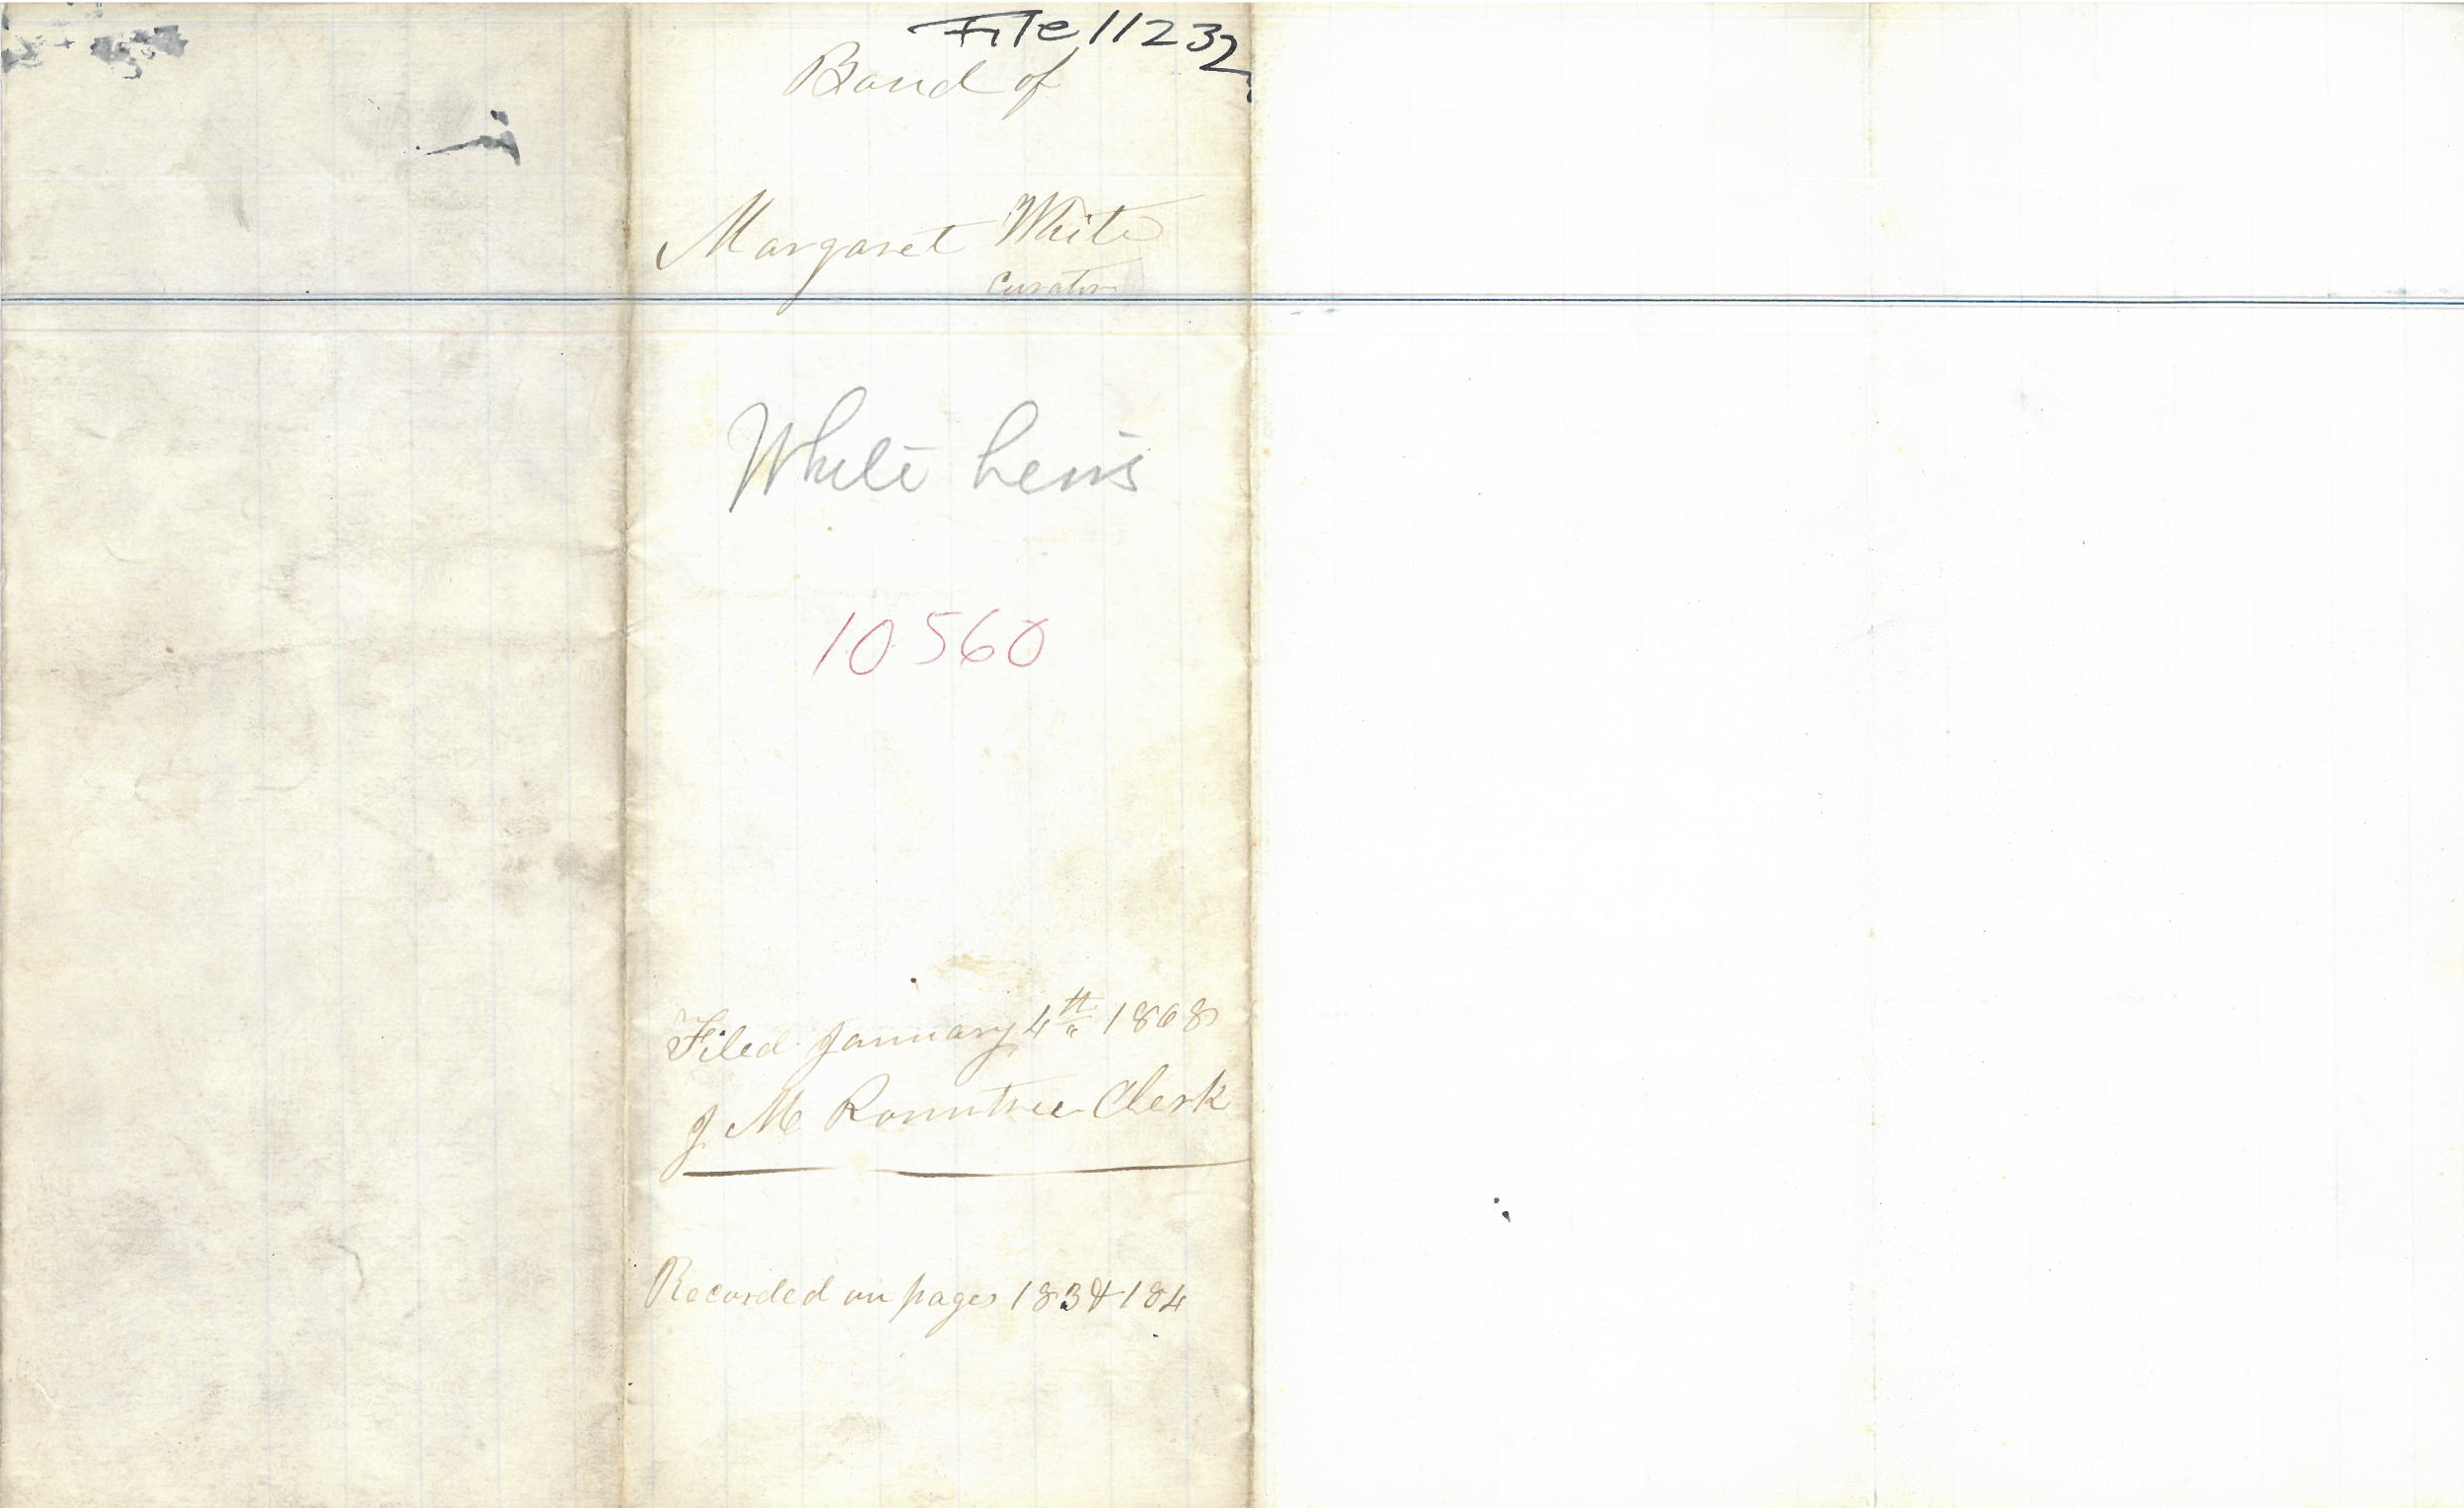 File 11232
Bond of
Margaret White
Curator
White heirs
10560
Filed January 4th 1868
J M Rountree Clerk
Recorded on pages 183 & 184